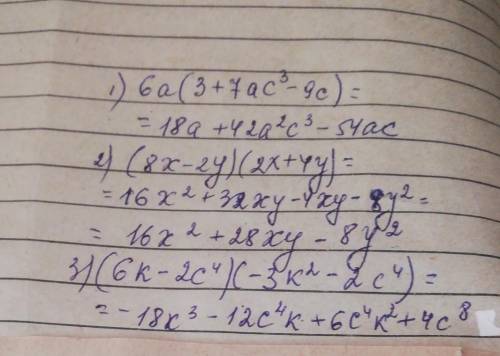 1) 6a(3+7ac³-9c)=
=18a+42a²c³-54ac
2) (8x-2y)(2x+4y)=
=16x²+32xy-4xy-8y²=
= 16x²+28xy-8y²
3) (6к-2c⁴)(-3к²-2c⁴)=
=-18к³-12c⁴к+6c⁴к²+4c⁸